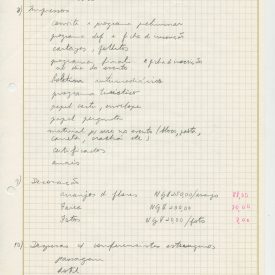 8) Impressos
convite e programa preliminar
programa def e ficha de inscrição
cartazes, folhetos
programa final e ficha de inscrição
ao dia do evento
programa turístico
papel carta, envelopes
papel pergunta
material p/ uso no evento (bloco, pasta,
caneta, crachá etc)
certificados
anais
9) Decoração
arranjos d flores NC$ 250,00/arranjo
Faixa NC$ 200,00
Fotos NC$ 20,00/foto
10) Despesas c/ conferencistas estrangeiros
passagem
hotel